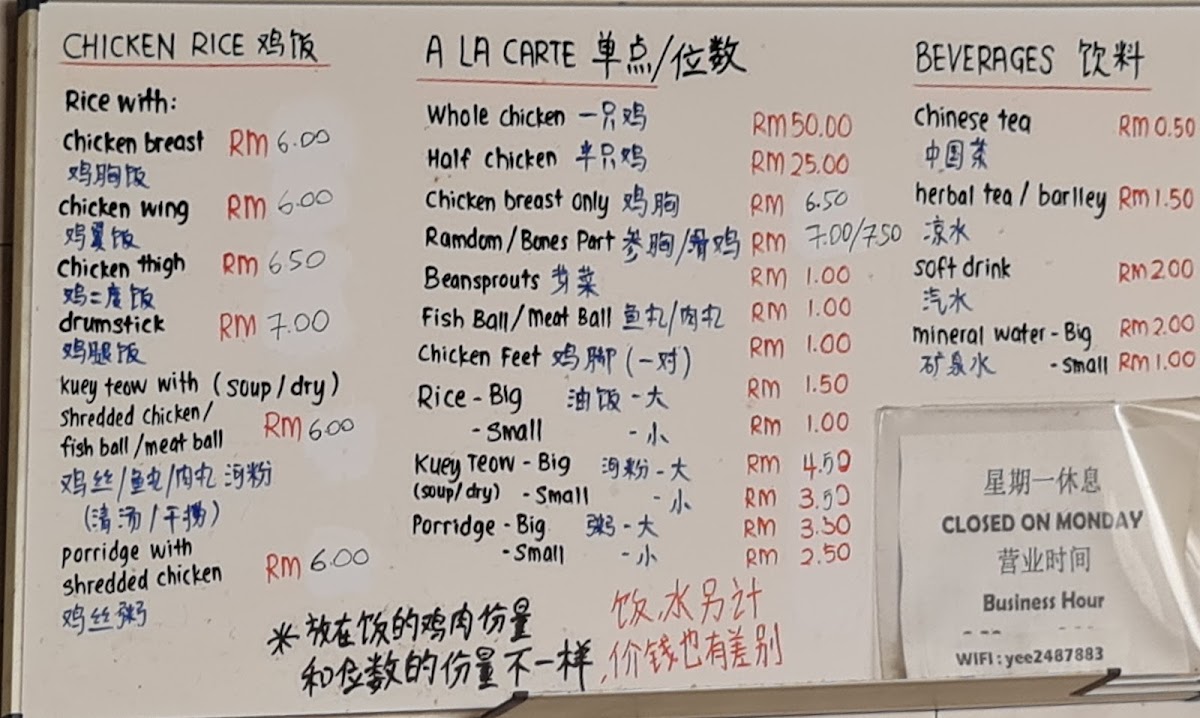 CHICKEN RICE 鸡饭
Rice with:
chicken breast RM 6.00
鸡胸饭
chicken wing RM 6.00
鸡翼饭
chicken thigh RM 6.50
鸡二度饭
drumstick RM 7.00
鸡腿饭
kuey teow with (soup/dry)
shredded chicken/
fish ball/meat ball RM 6.00
鸡丝/鱼丸/肉丸 河粉
(清汤/干捞)
porridge with
shredded chicken RM 6.00
鸡丝粥
A LA CARTE 单点/位数
Whole chicken 一只鸡 RM 50.00
Half chicken 半只鸡 RM 25.00
Chicken breast only 鸡胸 RM 6.50
Ramdom/Bones Part 参胸/滑鸡 RM 7.00/7.50
Beansprouts 芽菜 RM 1.00
Fish Ball/Meat Ball 鱼丸/肉丸 RM 1.00
Chicken Feet 鸡脚 (一对) RM 1.00
Rice - Big 油饭 - 大 RM 1.50
- Small - 小 RM 1.00
Kuey Teow - Big 河粉 - 大 RM 4.50
(soup/dry) - Small - 小 RM 3.50
Porridge - Big 粥 - 大 RM 3.50
- Small - 小 RM 2.50
BEVERAGES 饮料
chinese tea RM 0.50
中国茶
herbal tea / barlley RM 1.50
凉水
soft drink RM 2.00
汽水
mineral water - Big RM 2.00
矿泉水 - Small RM 1.00
*放在饭的鸡肉份量
和位数的份量不一样,
饭,水另计
价钱也有差别
星期一休息
CLOSED ON MONDAY
营业时间
Business Hour
WIFI : yee2487883